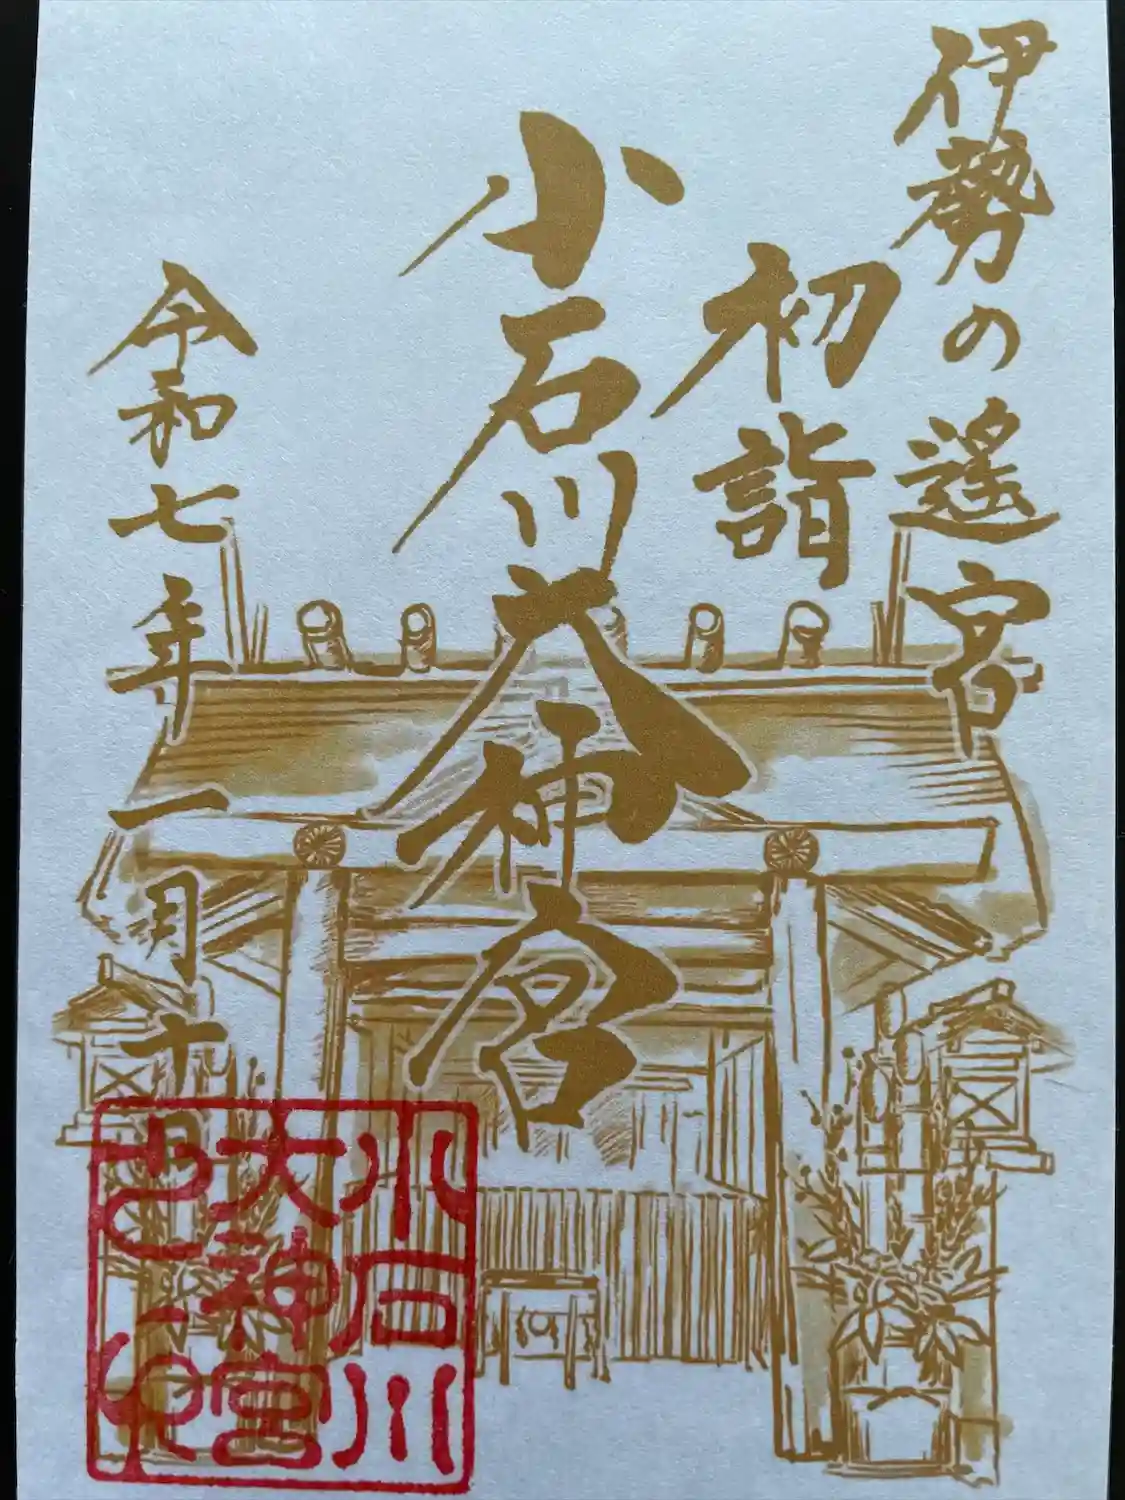 伊勢の遥宮
初詣
小石川大神宮
令和七年一月十一日
小石川
大神宮
之印